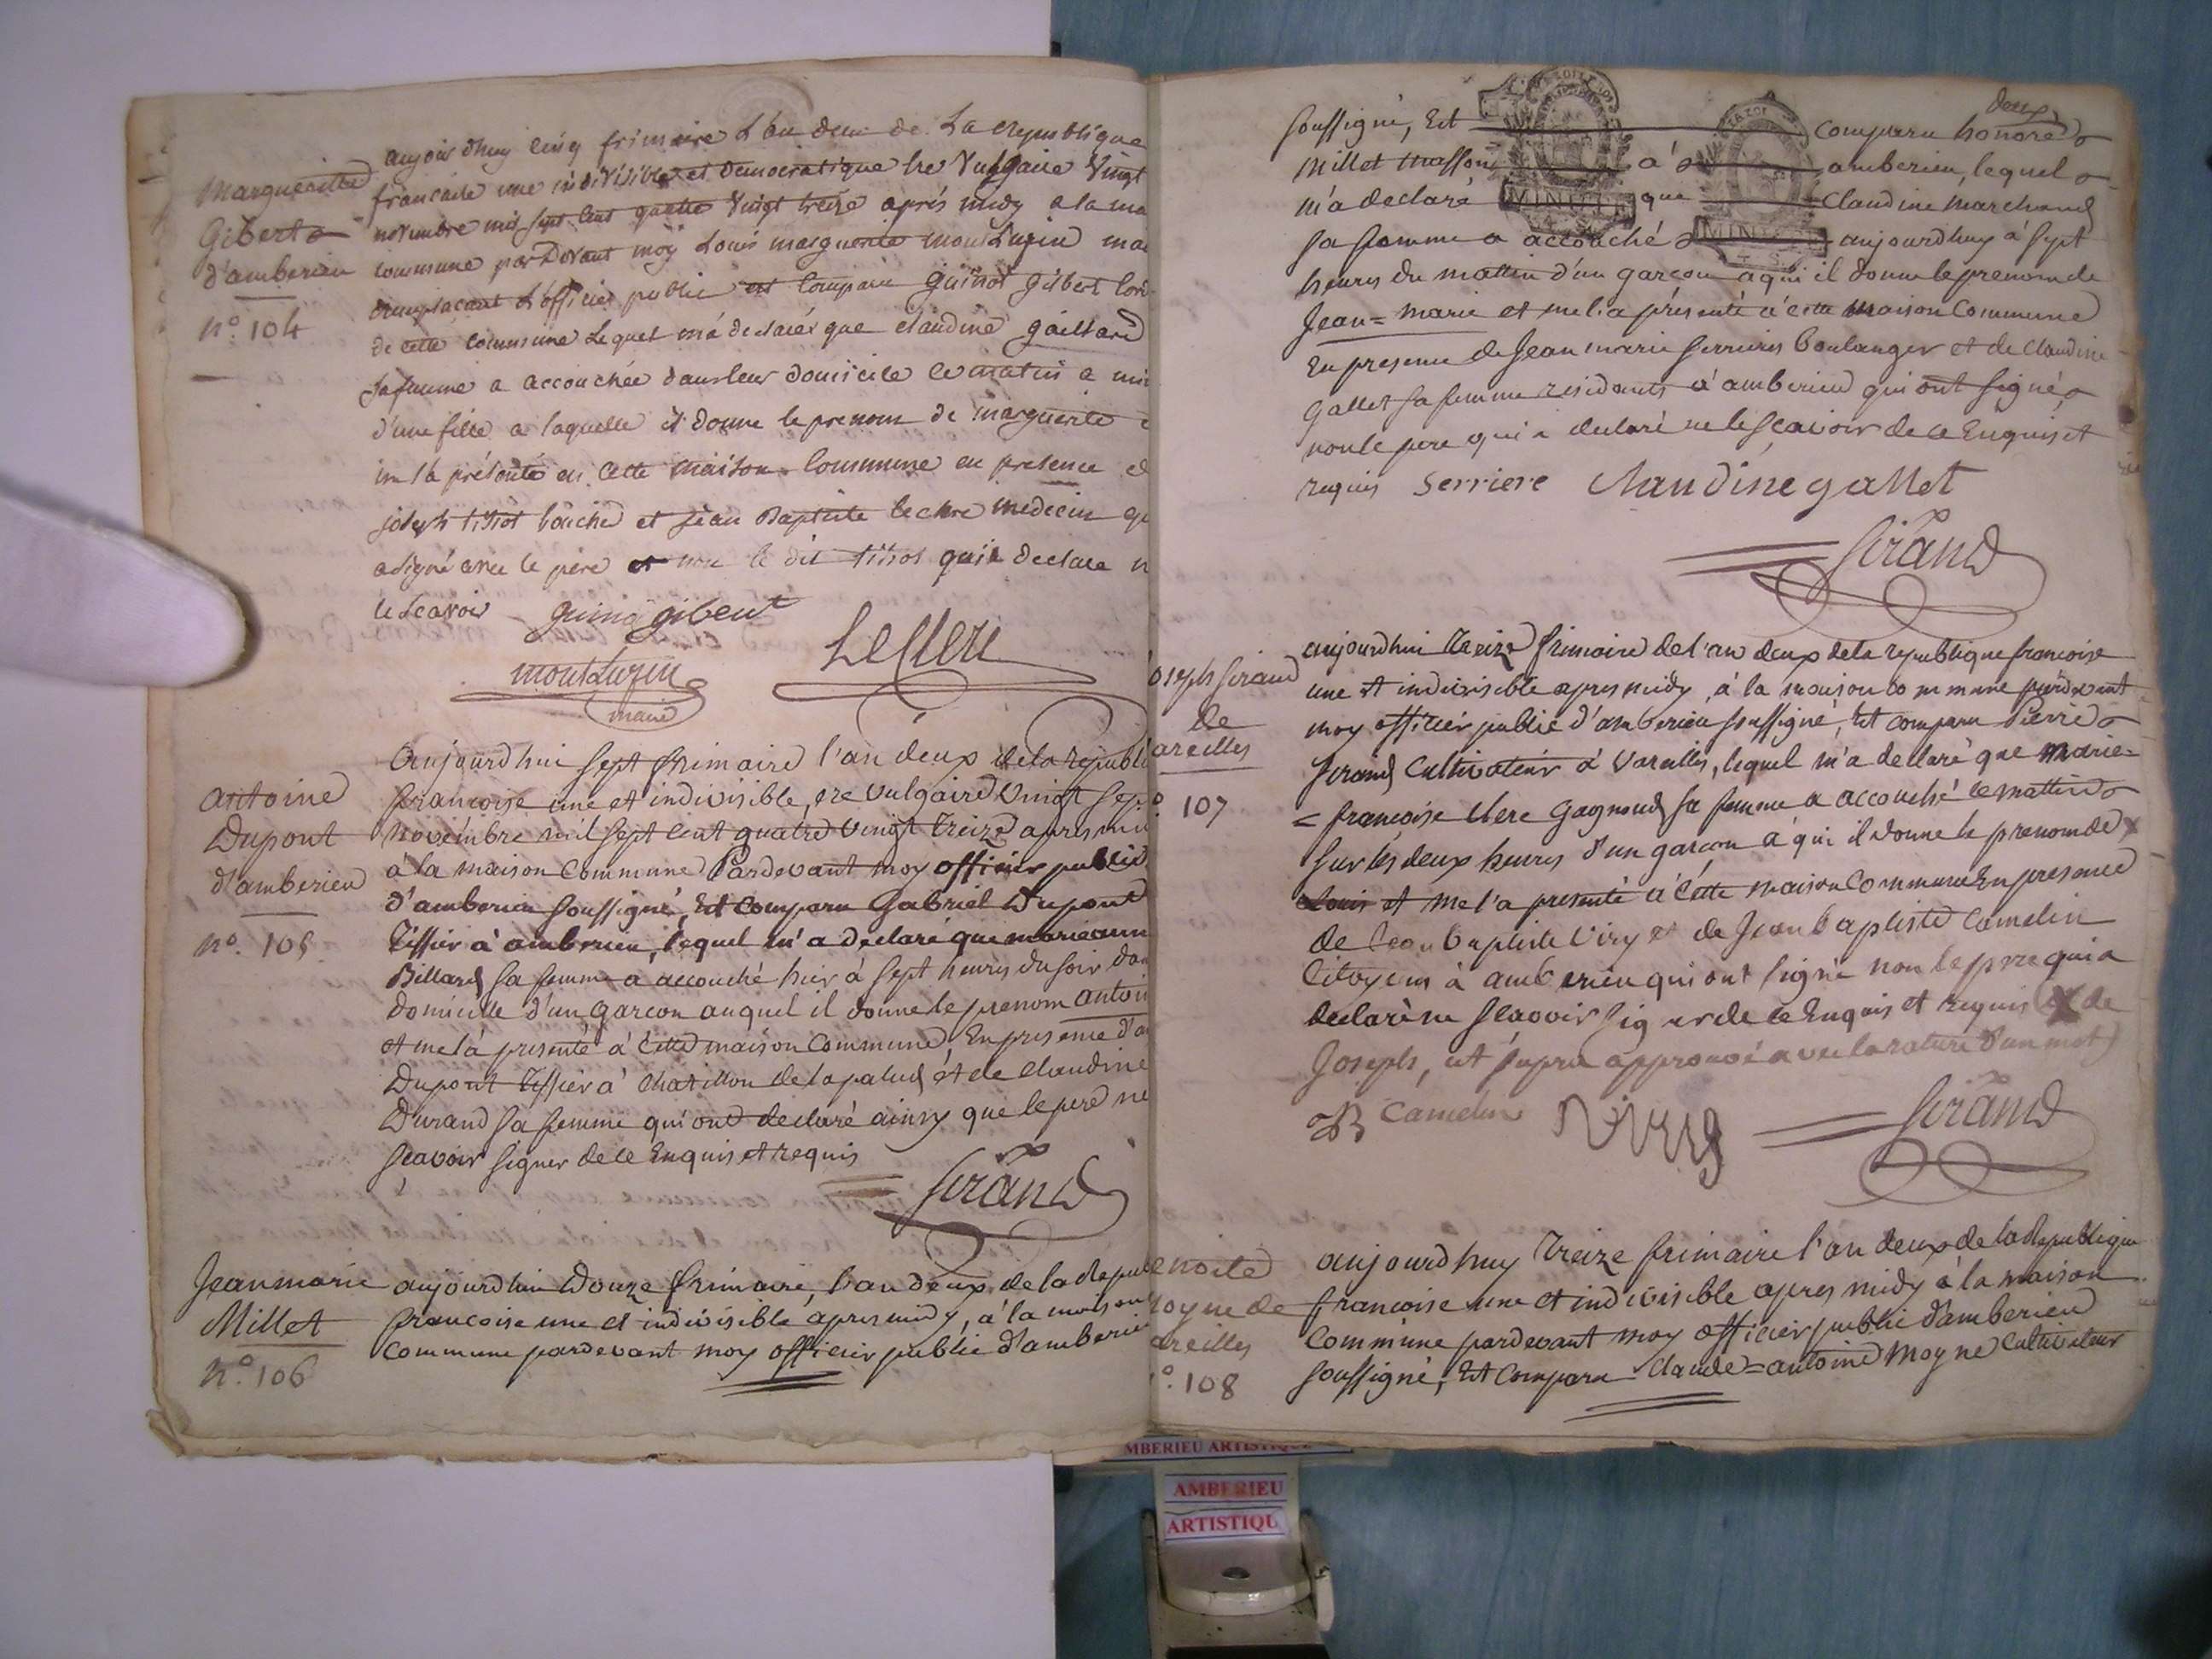 Margueritte
Gibert
d'amberieu
n.º 104
aujour dhuy cinq frimaire L'an deux de La republique
francaise une indivisible et democratique Ere Vulgaire Vingt
novembre mil sept cent quatre Vingt treize aprés midy a la
commune par Devant moy Louis marguerite montluzin
remplacant L'officier public est comparu guinot gibert
de cette commune Lequel m'a declaré que claudine gaillard
sa femme a accouchée dans leur domicile ce matin a
d'une fille a laquelle il donne le prenom de marguerite
me la présenté en cette maison commune en présence
joseph tissot boucher et jean Baptiste leclere medecin
a signé avec le pere et non le dit tissot qui a declare
le scavoir
gibert
Leclere
montluzin
maire
antoine
Dupont
d'amberieu
n.º 105
aujourd'hui sept frimaire l'an deux de la republi
francoise une et indivisible, ere vulgaire vingt sept
novembre mil sept cent quatre vingt treize apres mi
à la maison commune Pardevant moy officier public
d'amberieu soussigné, Est comparu Gabriel Dupont
Tissier à amberieu, lequel m'a declaré que marie ann
Billard sa femme a accouché hier à sept heures du soir dan
domicille d'un garcon auquel il donne le prenom antoi
et me l'a presenté à cette maison commune En presence d'a
Dupont Tissier à chatillon de la palud et de claudine
Durand sa femme qui ont declaré ainsy que le pere ne
scavoir signer de ce Enquis et requis
Sirand
Jean marie
Millet
n.º 106
aujourd'hui Douze frimaire, l'an deux de la Repub
francoise une et indivisible apres midy, à la maison
commune pardevant moy officier public d'amberie
deux
soussigné, Est comparu honoré
Millet masson à amberieu, lequel
m'a declaré que claudine marchand
sa femme a accouché aujourdhuy à sept
heures du mattin d'un garcon a qui il donne le prenom de
Jean = marie et me l'a présenté à cette maison commune
En presence de Jean marie serrieres boulanger et de claudine
gallet sa femme residants à amberieu qui ont signé
non le pere qui a declaré ne le scavoir de ce Enquis et
requis serriere claudine gallet
Sirand
oseph Sirand
de
areilles
107
aujourd'hui treize frimaire de l'an deux de la republique francoise
une et indivisible apres midy, à la maison commune pardevant
moy officier public d'amberieu soussigné, Est comparu Pierre
Sirand cultivateur à Vareilles, lequel m'a declaré que marie =
= francoise clere Gagnoud sa femme a accouché ce mattin
sur les deux heures d'un garcon à qui il donne le prenom de
Louis et me l'a presenté à cette maison commune En presence
de Jean baptiste Viry et de Jean baptiste camelin
citoyens à amberieu qui ont signé non le pere qui a
declaré ne scavoir signer de ce Enquis et requis de
Joseph, ut supra approuvé avec la rature d'un mot)
JB camelin Viry Sirand
enoite
oyne de
areilles
º. 108
aujourd huy Treize frimaire l'an deux de la Republique
francoise une et indivisible apres midy à la maison
commune pardevant moy officier public d'amberieu
soussigné, Est comparu claude = antoine moyne cultivateur
MINUTE
MINUTE
MBERIEU ARTISTIQUE
AMBERIEU
ARTISTIQU